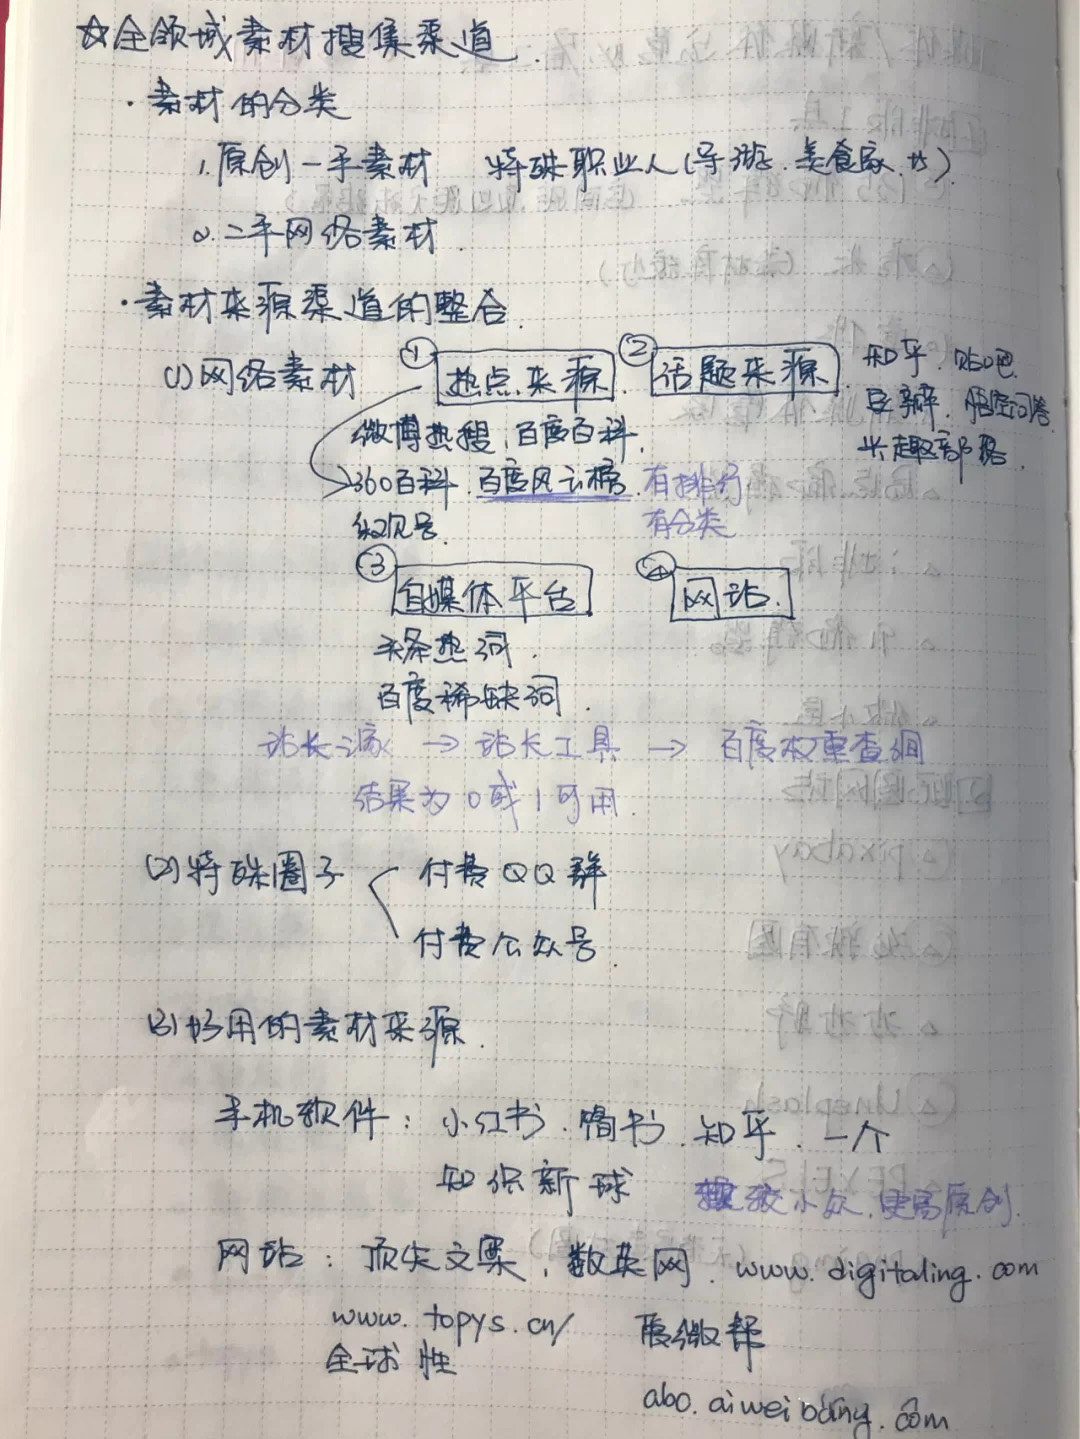 ☆全领域素材搜集渠道.
·素材的分类
1.原创一手素材 特殊职业人(导游.美食家.
2.二手网络素材.
·素材来源渠道的整合.
(1)网络素材 ①热点来源. ②话题来源. 知乎.贴吧.
豆瓣.悟空问答.
兴趣部落.
微博热搜.百度百科.
360百科.百度风云榜. 有排行
有分类
③自媒体平台 ④网站.
头条热词.
百度稀缺词.
站长之家 → 站长工具 → 百度权重查询
结果为0或1可用.
(2)特殊圈子 付费QQ群
付费公众号.
(3)好用的素材来源.
手机软件: 小红书.简书.知乎.一个
知识新球 较小众,更高原创.
网站: 顶尖文案,数英网.www.digitaling.com
www.topys.cn/
全球性
abo.aiweibang.com